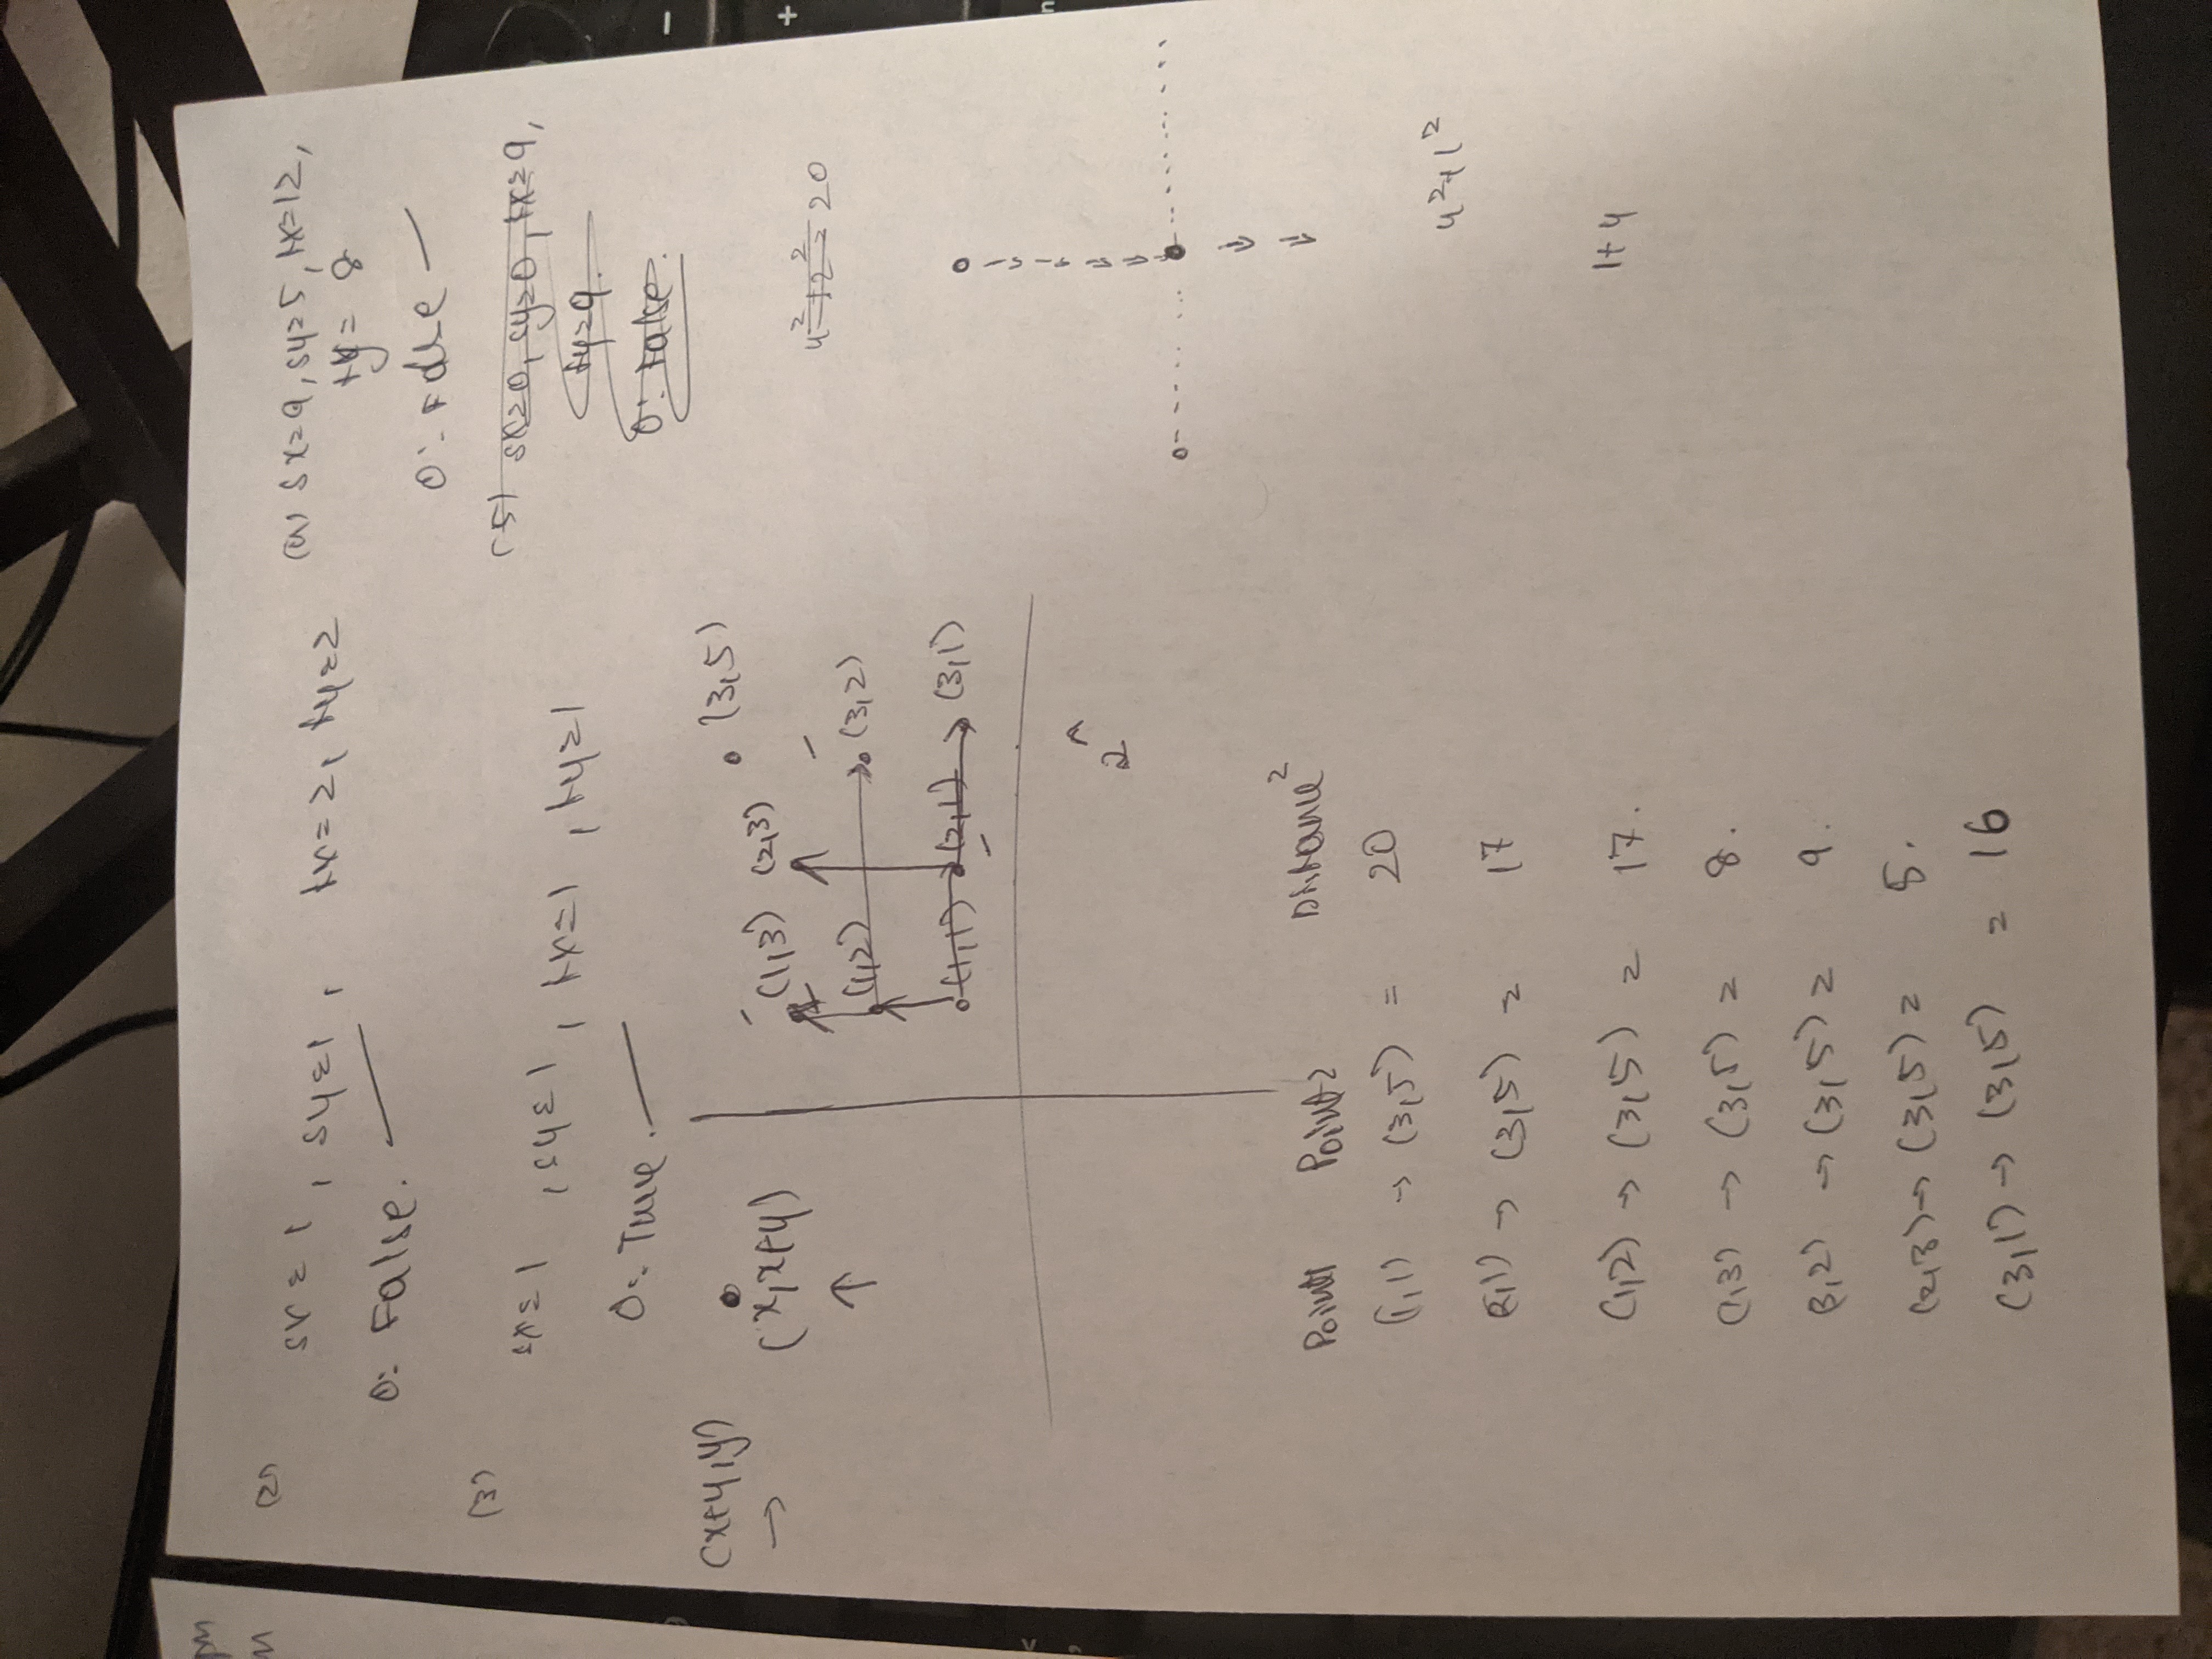 pm
m
(2)
sx = 1, sy = 1, tx = 2, ty = 2
O: False.
(3)
sx = 1, sy = 1, tx = 1, ty = 1
O: True.
sx = 9, sy = 5, tx = 12,
ty = 8
O: False
(5) sx = 0, sy = 0, tx = 9,
ty = 9.
O: False.
(x+y, y)
→
(x, x+y)
↑
(1,3) (2,3) (3,5)
(1,2) (3,2)
(1,1) (2,1) (3,1)
2
4² + 2² = 20
Point1 Point2 Distance²
(1,1) → (3,5) = 20
(2,1) → (3,5) = 17
(1,2) → (3,5) = 17.
(1,3) → (3,5) = 8.
(3,2) → (3,5) = 9.
(2,3) → (3,5) = 5.
(3,1) → (3,5) = 16
4²+1²
1+4